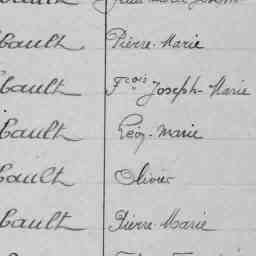 bault Pierre-Marie
bault Fçois Joseph-Marie
bault Léon-Marie
bault Olivier
bault Pierre-Marie